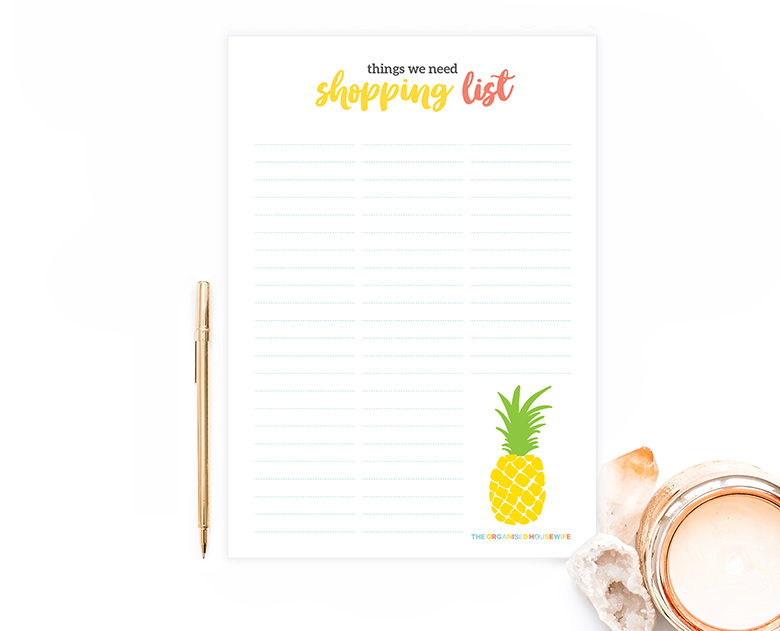 things we need
shopping list
THE ORGANISED HOUSEWIFE